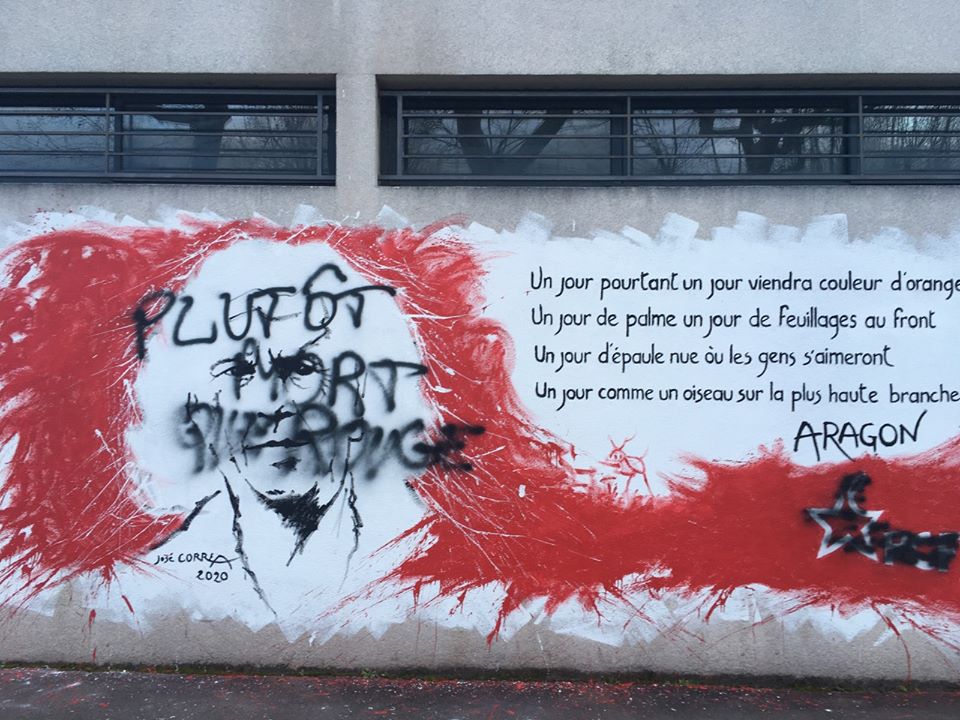 PLUTÔT
MORT
QUE ROUGE
JOSÉ CORREA
2020
Un jour pourtant un jour viendra couleur d'orange
Un jour de palme un jour de feuillages au front
Un jour d'épaule nue òu les gens s'aimeront
Un jour comme un oiseau sur la plus haute branche
ARAGON
PCF